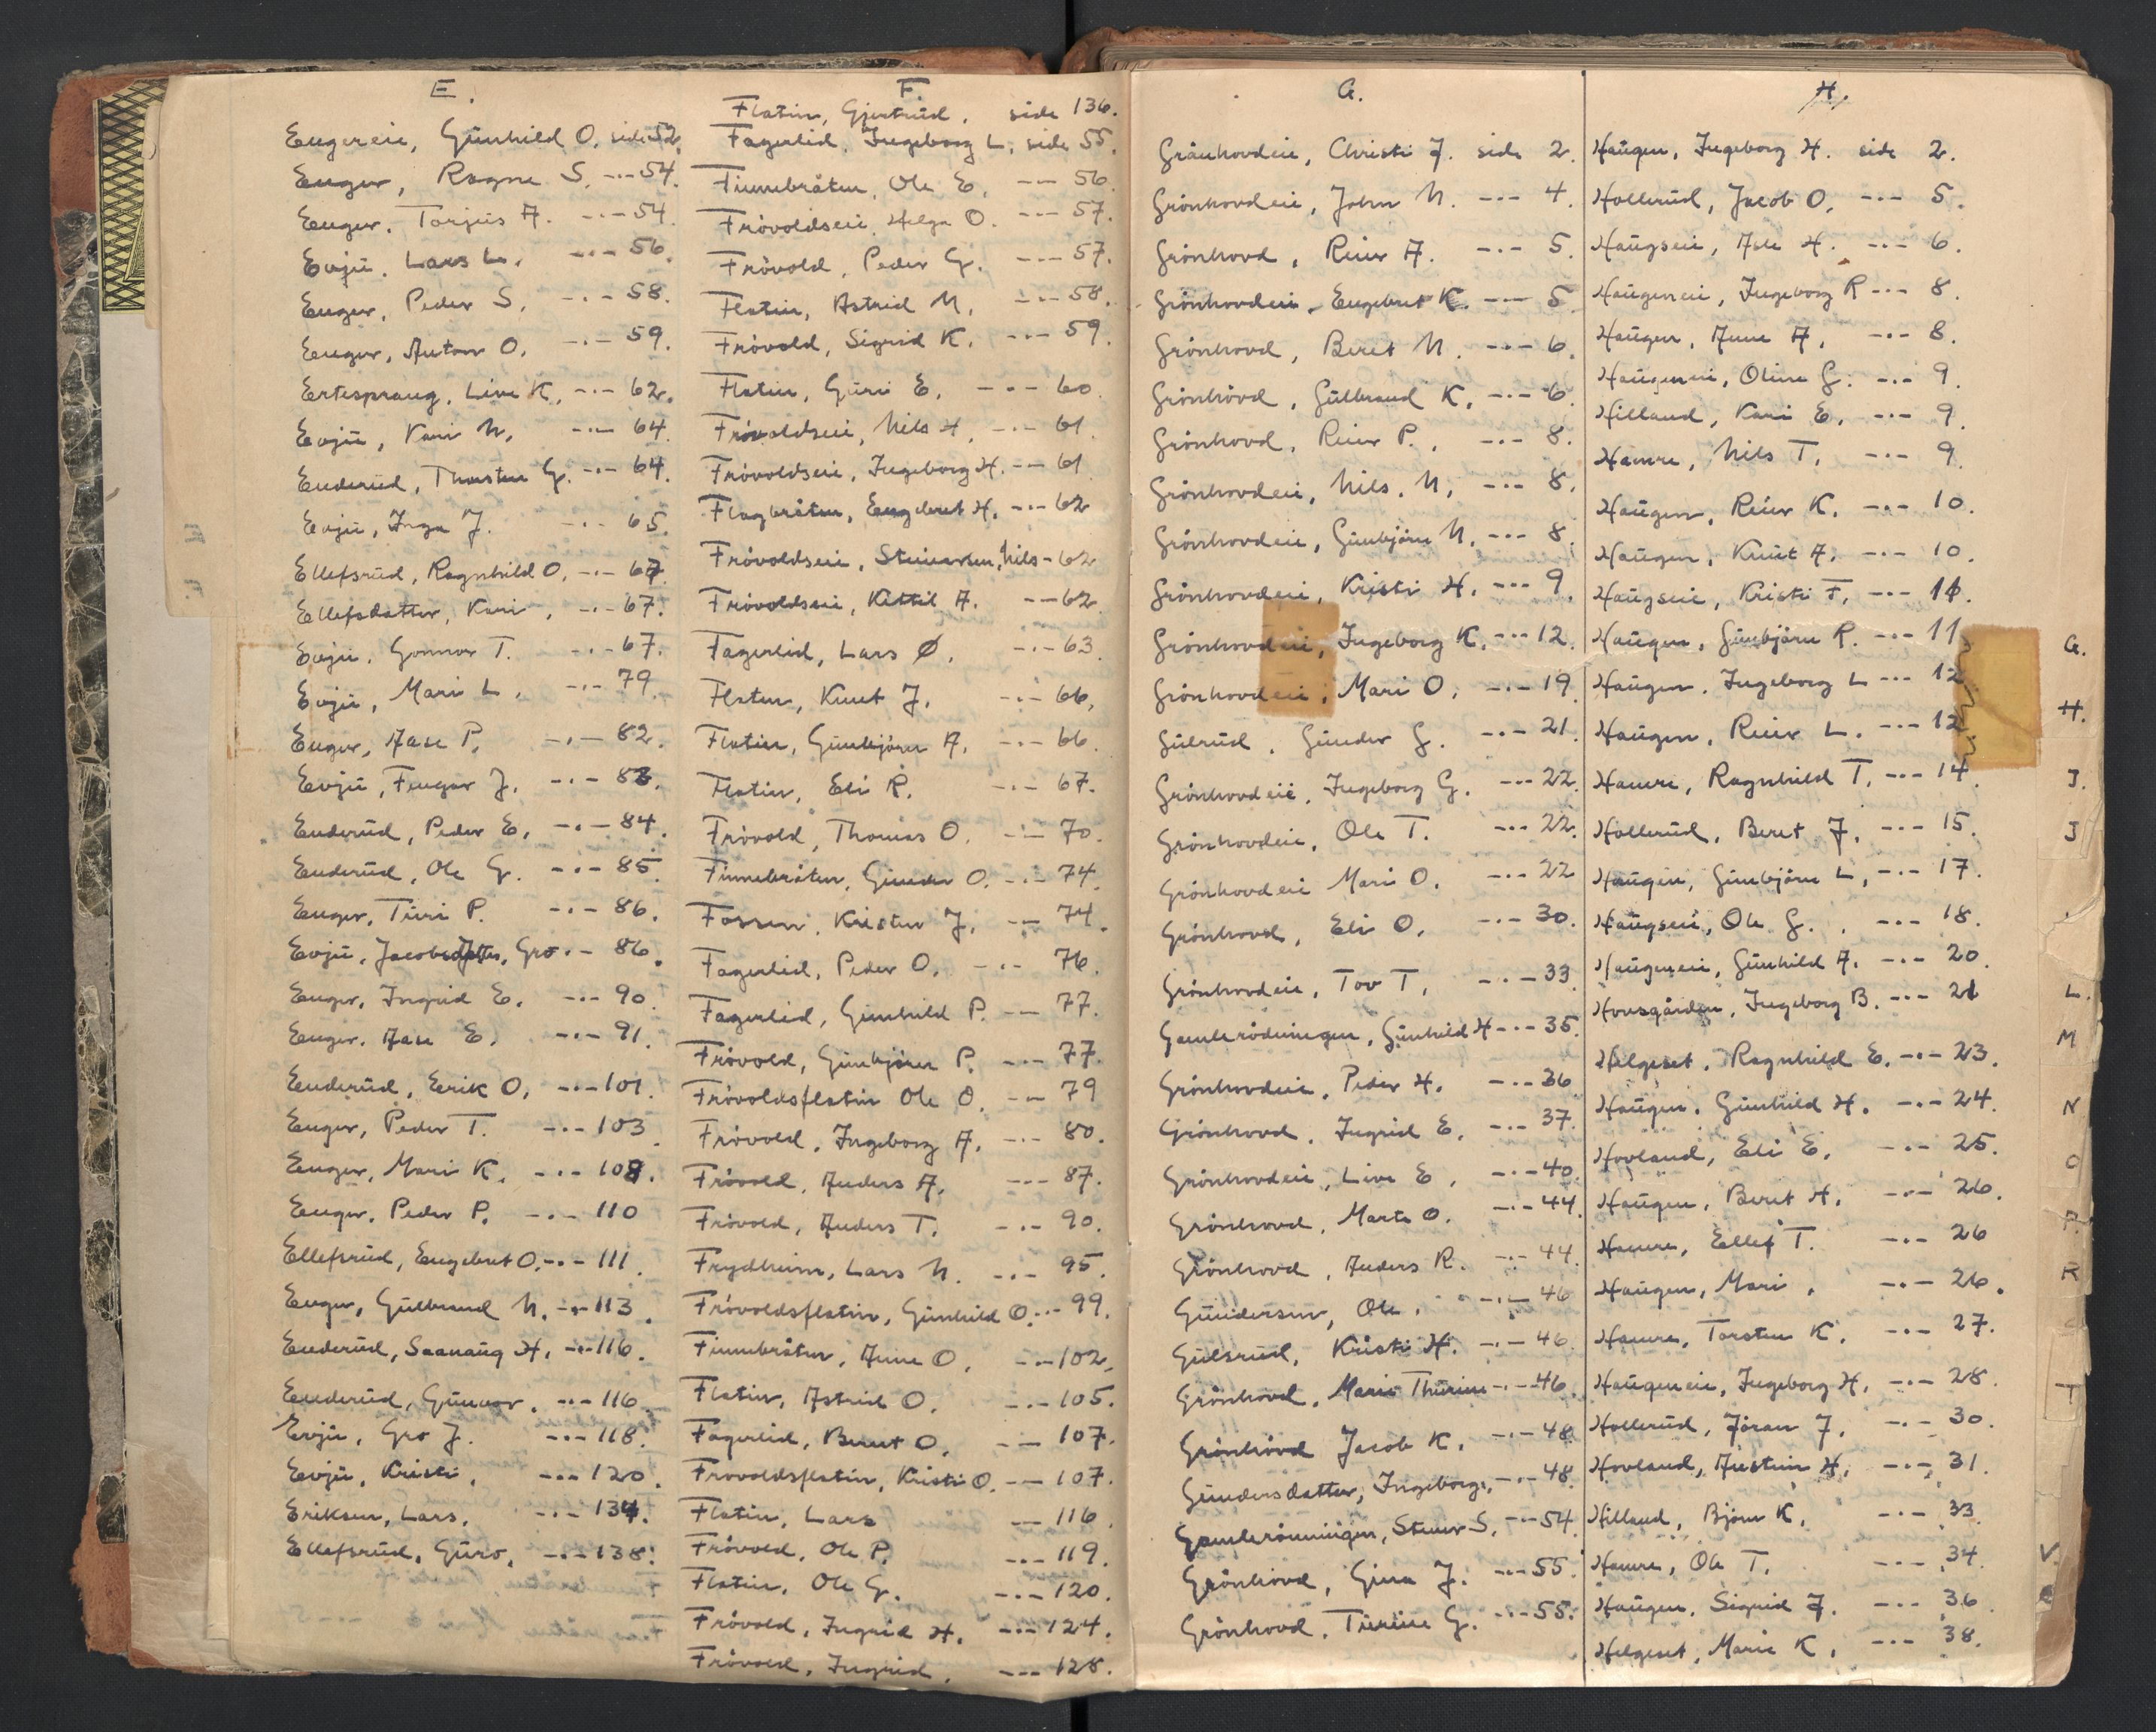 E.
Engereie, Gŭnhild O. side 52.
Enger, Ragne S. -.- 54.
Enger, Tarjŭs A. -.- 54.
Evjŭ, Lars L. -.- 56.
Enger, Peder S. -.- 58.
Enger, Anton O. -.- 59.
Ertesprang, Live K. -.- 62.
Evjŭ, Kari N. -.- 64.
Enderŭd, Thorsten G. -.- 64.
Evjŭ, Inga J. -.- 65.
Ellefsrŭd, Ragnhild O. -.- 67.
Ellefsdatter, Kari, -.- 67.
Evjŭ, Gonnor T. -.- 67.
Evjŭ, Mari L. -.- 79.
Enger, Aase P. -.- 82.
Evjŭ, Fengar J. -.- 83.
Enderŭd, Peder E. -.- 84.
Enderŭd, Ole G. -.- 85.
Enger, Tŭri P. -.- 86.
Evjŭ, Jacobsdatter, Gro -.- 86.
Enger, Ingrid E. -.- 90.
Enger, Aase E. -.- 91.
Enderŭd, Eerik O. -.- 101.
Enger, Peder T. -.- 103.
Enger, Mari K. -.- 108.
Enger, Peder P. -.- 110
Ellefsrŭd, Engebret O. -.- 111.
Enger, Gŭlbrand N. -.- 113.
Enderŭd, Saanaŭg H. -.- 116.
Enderŭd, Gŭnvor. -.- 116.
Evjŭ, Gro J. -.- 118.
Evjŭ, Kristi, -.- 120.
Eriksen, Lars, -.- 134.
Ellefsrŭd, Gŭro, -.- 138.
F.
Flatin, Gjertrŭd, side 136.
Fagerlid, Ingeborg L. side 55.
Finnebråten, Ole E. -.- 56.
Frövoldseie, Helga O. -.- 57.
Frövold, Peder G. -.- 57.
Flatin, Astrid N. -.- 58.
Frövold, Sigrid K. -.- 59.
Flatin, Gŭri E. -.- 60.
Frövoldseie, Nils H. -.- 61.
Frövoldseie, Ingeborg H. -.- 61
Flagbråten, Engebret H. -.- 62
Frövoldseie, Steinarsen, Nils - 62
Frövoldseie, Kittil A. -.- 62.
Fagerlid, Lars Ø. -.- 63.
Flatin, Knut J. -.- 66.
Flatin, Gŭnbjörn A. -.- 66.
Flatin, Eli R. -.- 67.
Frövold, Thomas O. -.- 70.
Finnebråten, Gŭnder O. -.- 74.
Fossen, Kristen J. -.- 74.
Fagerlid, Peder O. -.- 76.
Fagerlid, Gŭnhild P. -.- 77.
Frövold, Gŭnbjörn P. -.- 77.
Frövoldsflatin Ole O. -.- 79
Frövold, Ingeborg A. -.- 80.
Frövold, Anders A. -.- 87.
Frövold, Anders T. -.- 90.
Frydheim, Lars N. -.- 95.
Frövoldsflatin, Gŭnhild O. -.- 99.
Finnebråten, Anne O. -.- 102.
Flatin, Astrid O. -.- 105.
Fagerlid, Beret O. -.- 107.
Frovoldsflatin, Kristi O. -.- 107.
Flatin, Lars -.- 116.
Frövold, Ole P. -.- 119.
Flatin, Ole G. -.- 120.
Frövold, Ingrid H. -.- 124.
Frövold, Ingrid. -.- 128.
G.
Grönhovdeie, Christi J. side 2.
Grönhovdeie, John N. -.- 4.
Grönhovd, Reier A. -.- 5.
Grönhovdeie, Engebret K. -.- 5
Grönhovd, Beret N. -.- 6.
Grönhövd, Gŭlbrand K. -.- 6.
Grönhovd, Reier P., -.- 8.
Grönhovdeie, Nils. N. -.- 8.
Grönhovdeie, Gŭnbjörn N. -.- 8.
Grönhovdeie, Kristi H. -.- 9.
Grönhovdeie, Ingeborg K. -.- 12.
Grönhovdeie, Mari O. -.- 19.
Gŭlrŭd, Gŭnder G. -.- 21.
Grönhovdeie, Ingeborg G. -.- 22.
Grönhovdeie, Ole T. -.- 22.
Grönhovdeie Mari O. -.- 22
Grönhovd, Eli O. -.- 30.
Grönhovdeie, Tov T. -.- 33.
Gamlerödningen, Gŭnhild H -.- 35.
Grönhovdeie, Peder H. -.- 36
Grönhovd, Ingrid E. -.- 37.
Grönhovdeie, Live E. -.- 40.
Grönhovd, Marte O. -.- 44.
Grönhovd, Anders R. -.- 44.
Gŭndersen, Ole, -.- 46
Gŭlsrŭd, Kristi H. -.- 46.
Grönhovd, Marie Thŭrine -.- 46.
Grönhövd Jacob K. -.- 48.
Gŭndersdatter, Ingeborg, -.- 48.
Gamlerönningen, Stener S. -.- 54.
Grönhövd, Gina J. -.- 55.
Grönhovd, Tŭrine G. -.- 55.
H.
Haŭgen, Ingeborg H. side 2.
Hollerŭd, Jacob O. -.- 5.
Haŭgseie, Asle H. -.- 6.
Haŭgeneie, Ingeborg R -.- 8.
Haŭgen, Anne A. -.- 8.
Haŭgeneie, Oline G. -.- 9.
Hilland, Kari E. -.- 9.
Hamre, Nils T. -.- 9.
Haŭgen, Reier K. -.- 10.
Haŭgen, Knŭt A. -.- 10.
Haŭgseie, Kristi F. -.- 11.
Haŭgen, Gŭnbjörn R. -.- 11
Haŭgen, Ingeborg L -.- 12
Haŭgen, Reier L. -.- 12
Hamre, Ragnhild T. -.- 14.
Hollerŭd, Beret J. -.- 15.
Haŭgen, Gŭnbjörn L. -.- 17.
Haŭgseie, Ole G. -.- 18.
Haŭgeneie, Gŭnhild A. -.- 20.
Hovsgården, Ingeborg B. -.- 21
Helgeset, Ragnhild E. -.- 23.
Haŭgen, Gŭnhild H. -.- 24.
Hovland, Eli E. -.- 25.
Haŭgen, Beret H. -.- 26.
Hamre, Ellef T. -.- 26
Haŭgen, Mari, -.- 26.
Hamre, Torsten K. -.- 27.
Haŭgeneie, Ingeborg H. -.- 28.
Hollerŭd, Jöran J. -.- 30.
Hovland, Aŭstin H. -.- 31.
Hilland, Björn K. -.- 33.
Hamre, Ole T. -.- 34.
Haŭgen, Sigrid J. -.- 36.
Helgeset, Marie K. -.- 38.
G.
H.
I.
J
L.
M
N
O
P.
R
T
V.